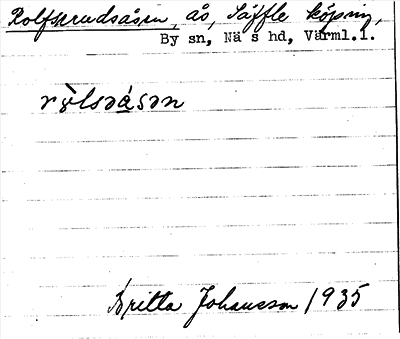 Rolfserudsåsen, ås, Säffle köping,
By sn, Nä s hd, Värml.l.
rɷ̀lsəásən
Britta Johansson 1935